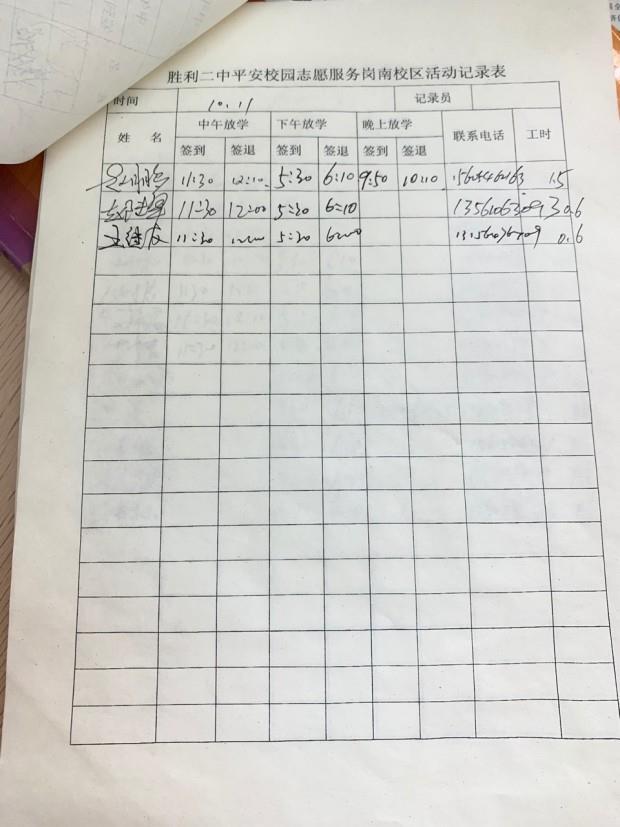 胜利二中平安校园志愿服务岗南校区活动记录表
时间 10.11 记录员
姓 名 中午放学 下午放学 晚上放学 联系电话 工时
签到 签退 签到 签退 签到 签退
11:30 12:10 5:30 6:10 9:50 10:10 1.5
11:30 12:00 5:30 6:10 13561063093 0.6
11:30 5:30 6:00 0.6